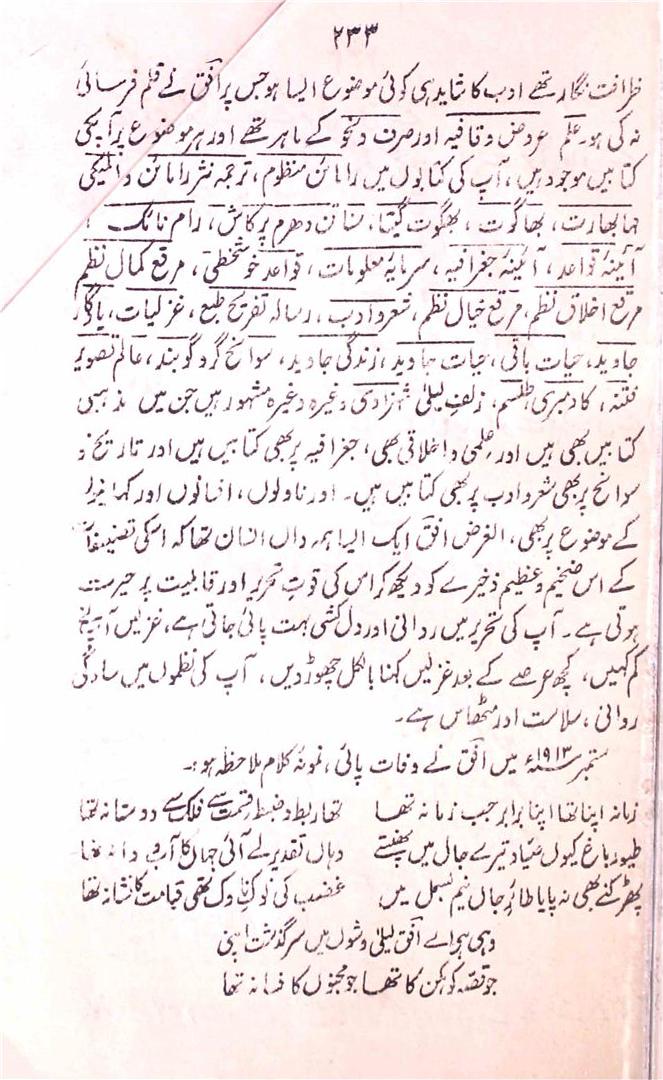 ۲۳۳
ظرافت نگار تھے ادب کا شاید ہی کوئی موضوع ایسا ہو جس پر افق نے قلم فرسائی
نہ کی ہو۔ علم عروض و قافیہ اور صرف و نحو کے ماہر تھے اور ہر موضوع پر آپکی
کتابیں موجود ہیں، آپ کی کتابوں میں رامائن منظوم، ترجمہ نثر رامائن والمیکی
مہابھارت، بھاگوت، بھگوت گیتا، سناتن دھرم پرکاش، رام ناٹک
آئینۂ قواعد، آئینۂ جغرافیہ، سرمایۂ معلومات، قواعد خوشخطی، مرقع کمال نظم
مرقع اخلاق نظم، مرقع خیال نظم، شعر و ادب، رسالہ تفریح طبع، غزلیات، یادگار
جاوید، حیات باقی، حیات جاوید، زندگی جاوید، سوانح گرو گوبند، عالم تصویر
فتنہ، کادمبری، طلسم، زلف لیلیٰ شہزادی وغیرہ وغیرہ مشہور ہیں جن میں مذہبی
کتابیں بھی ہیں اور علمی و اخلاقی بھی، جغرافیہ پر بھی کتابیں ہیں اور تاریخ و
سوانح پر بھی شعر و ادب پر بھی کتابیں ہیں۔ اور ناولوں، افسانوں اور کہانیوں
کے موضوع پر بھی، الغرض افق ایک ایسا ہمہ داں انسان تھا کہ اسکی تصنیفات
کے اس ضخیم و عظیم ذخیرے کو دیکھ کر اس کی قوتِ تحریر اور قابلیت پر حیرت
ہوتی ہے۔ آپ کی تحریر میں روانی اور دل کشی بہت پائی جاتی ہے، غزلیں آپ نے
کم کہیں، کچھ عرصے کے بعد غزلیں کہنا بالکل چھوڑ دیں، آپ کی نظموں میں سادگی
روانی، سلاست اور مٹھاس ہے۔
ستمبر ۱۹۱۳ء میں افق نے وفات پائی، نمونۂ کلام ملاحظہ ہو:۔
زمانہ اپنا تھا اپنا برابر جب زمانہ تھا تھا ربط و ضبط قسمت سے فلک سے دوستانہ تھا
طیور باغ کیوں صیاد تیرے جال میں پھنستے وہاں تقدیر لے آئی جہاں کا آب و دانہ تھا
پھڑکنے بھی نہ پایا طائر جاں نیم بسمل میں غضب کی نوک ناوک تھی قیامت کا نشانہ تھا
وہی ہے اے افق لیلیٰ وشوں میں سرگذشت اپنی
جو قصہ کوہکن کا تھا جو مجنوں کا فسانہ تھا